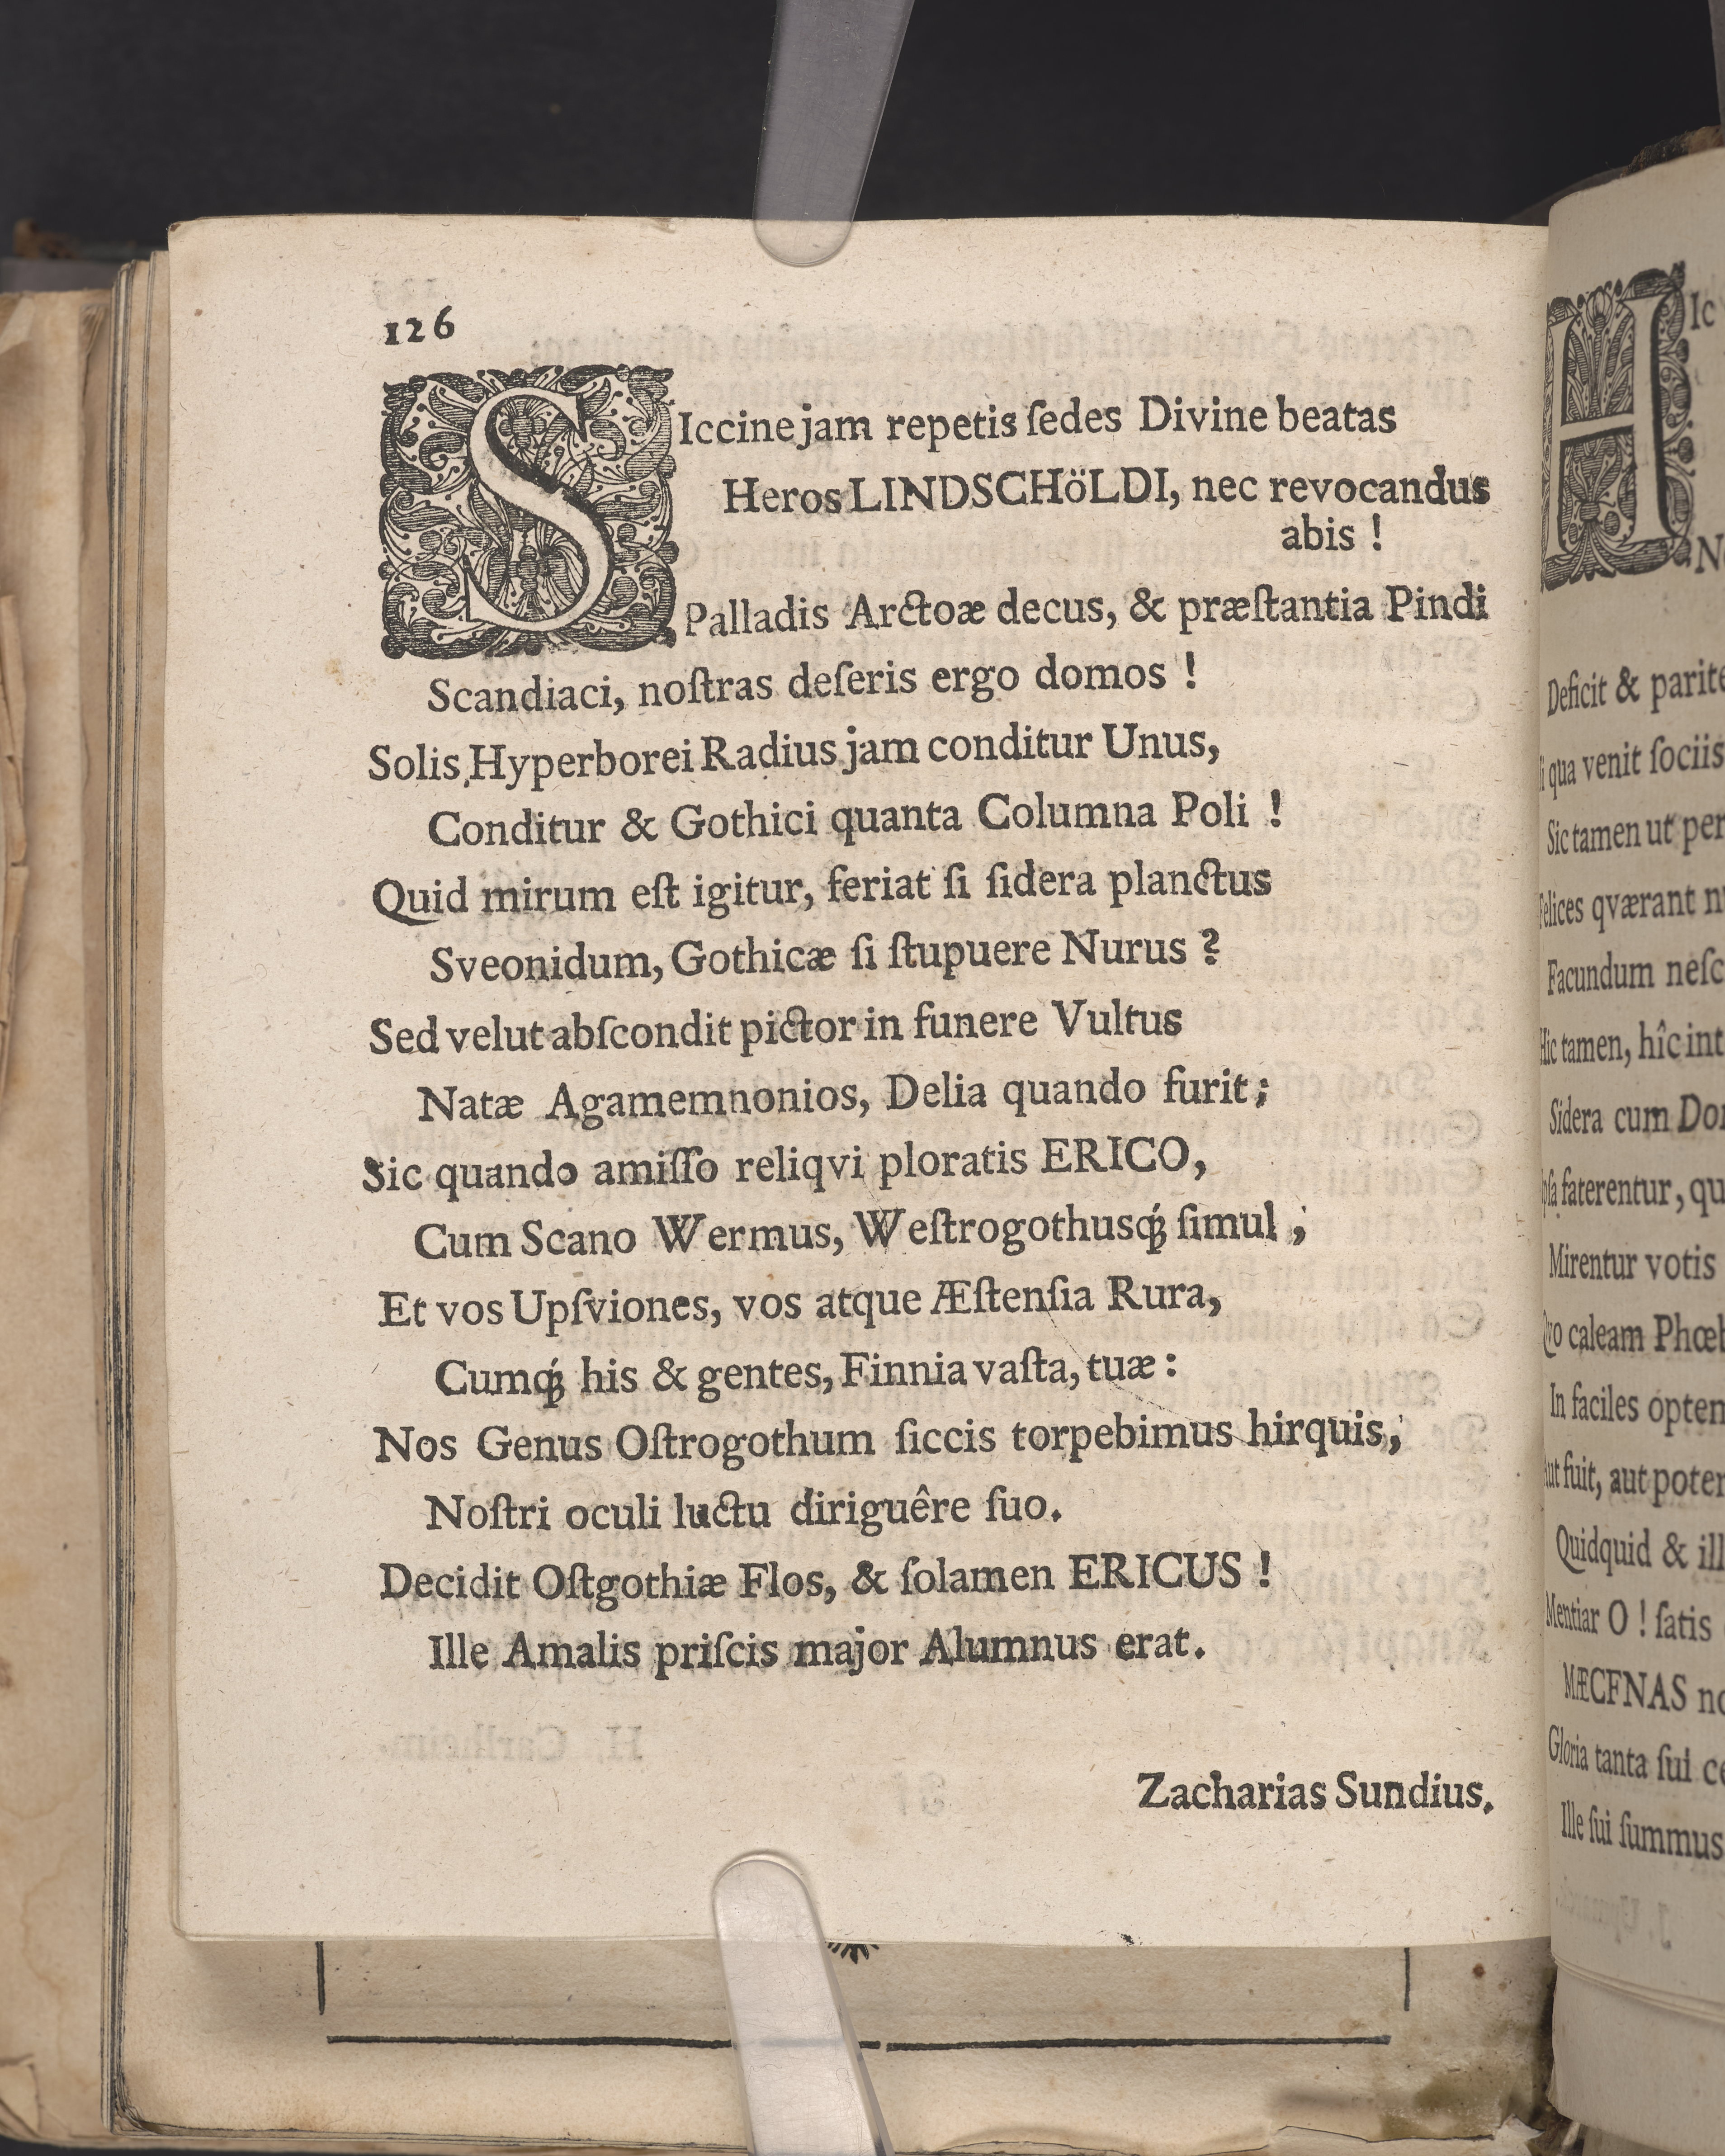 126
SIccine jam repetis ſedes Divine beatas
Heros LINDSCHöLDI, nec revocandus
abis !
Palladis Arctoæ decus, & præſtantia Pindi
Scandiaci, noſtras deſeris ergo domos !
Solis Hyperborei Radius jam conditur Unus,
Conditur & Gothici quanta Columna Poli !
Quid mirum eſt igitur, feriat ſi ſidera planctus
Sveonidum, Gothicæ ſi ſtupuere Nurus ?
Sed velut abſcondit pictor in funere Vultus
Natæ Agamemnonios, Delia quando furit;
Sic quando amiſſo reliqvi ploratis ERICO,
Cum Scano Wermus, Weſtrogothusq́; ſimul ;
Et vos Upſviones, vos atque Æſtenſia Rura,
Cumq́; his & gentes, Finnia vaſta, tuæ:
Nos Genus Oſtrogothum ſiccis torpebimus hirquis,
Noſtri oculi luctu diriguêre ſuo.
Decidit Oſtgothiæ Flos, & ſolamen ERICUS !
Ille Amalis priſcis major Alumnus erat.
Zacharias Sundius.
HIc
Deficit &
qua venit ſociis
Sic tamen ut
qværant
Facundum
tamen, hîc
Sidera cum
faterentur,
Mirentur votis
caleam
In faciles
fuit, aut
Quidquid &
Mentiar O ! ſatis
MÆCENAS
Gloria tanta ſui
Ille ſui ſummus